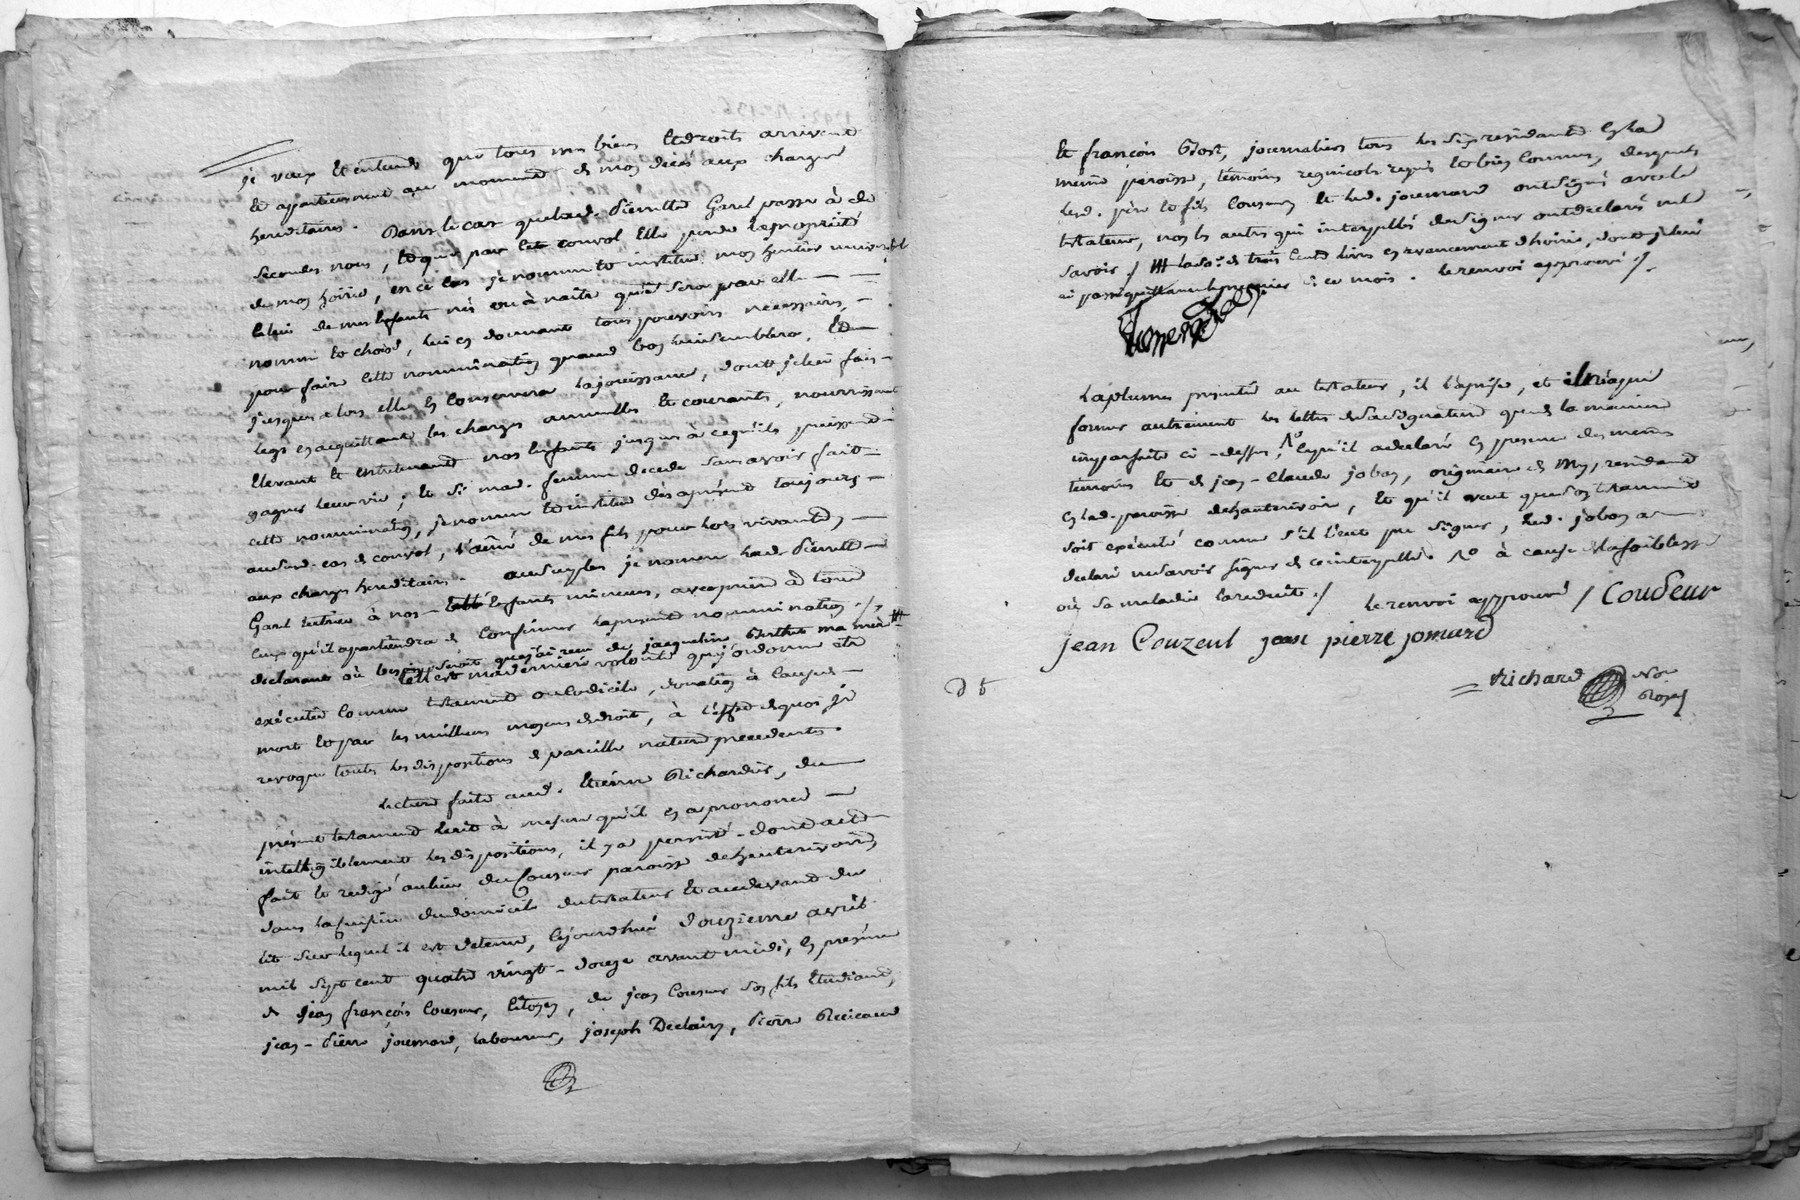 je veux et entends que tous mes biens et droits arrivent
et appartiennent au moment de mon deces aux charges
hereditaires. Dans le cas que lad. Pierrette Garel passe à de
secondes noces, et que par le convol elle perde la proprieté
de mon hoirie, en ce cas je nomme et institue mon heritier universel
celui de mes enfants nés ou à naitre qui sera par elle
nommé et choisi, lui en donnant tous pouvoirs necessaires,
pour faire cette nomination quand bon lui semblera, et
jusques alors elle en conservera la jouissance, dont je lui fais
legs en acquittant les charges annuelles et courants, nourrissant
elevant et entretenant nos enfants jusques à ce qu'ils puissent
gagner leur vie; et si mad. femme decede sans avoir fait
cette nomination, je nomme et institue dès apresent toujours
audit cas de convol, l'ainé de mes fils pour lors vivants,
aux charges hereditaires. au surplus je nomme lade Pierrette
Garel tutrice à nos enfants mineurs, avec priere à tous
ceux qu'il apartiendra de confirmer la presente nomination ./.
declarant où besoin seroit que j'ai reçu de jacqueline Berthet ma mere #
telle est ma derniere volonté que j'ordonne etre
exécutée comme testament ou codicile, donation à cause de
mort et par les meilleurs moyens de droit, à l'effet de quoi je
revoque toutes les dispositions de pareille nature precedentes.
Lecture faite aud. Etienne Richardier, du
présent testament ecrit à mesure qu'il en a prononcé
intelligiblement les dispositions, il y a persisté - dont acte
fait et redigé au lieu du Couseur paroisse de hauterivoire
dans la cuisine du domicile du testateur et au devant du
lit sur lequel il est detenu, cejourdhui douzieme avril
mil sept cent quatre vingt - douze avant midi, en presence
de Jean françois Couseur, citoyen, de jean Couseur son fils Etudiant,
jean - Pierre joumard, laboureur, joseph Declairy, Pierre Ruicaud
et françois Bost, journaliers tous les six residants en la
meme paroisse, témoins regnicoles requis et bien connus, desquels
lesd. père et fils Couseur et led. joumard ont signé avec le
testateur, non les autres qui interpellés de signer ont declaré ne le
savoir ./. # la so.e de trois cents livres en avancement d'hoirie, dont je lui
ai passé quittance le premier de ce mois. le renvoi approuvé ./.
La plume presentée au testateur, il l'a prise, et il n'a pu
former autrement les lettres de sa signature que de la maniere
imparfaite ci - dessus, ce qu'il a declaré en presence des memes
témoins et de jean - Claude joban, originaire de , residant
en lad. paroisse de hauterivoire, et qu'il veut que son testament
soit exécuté comme s'il l'eut pu signer, led. joban a
declaré ne savoir signer de ce interpellé. à cause de la foiblesse
où sa maladie la reduit ./. le renvoi approuvé / Couseur
jean Couzeul jean pierre jomard
Richard No.re
Royal